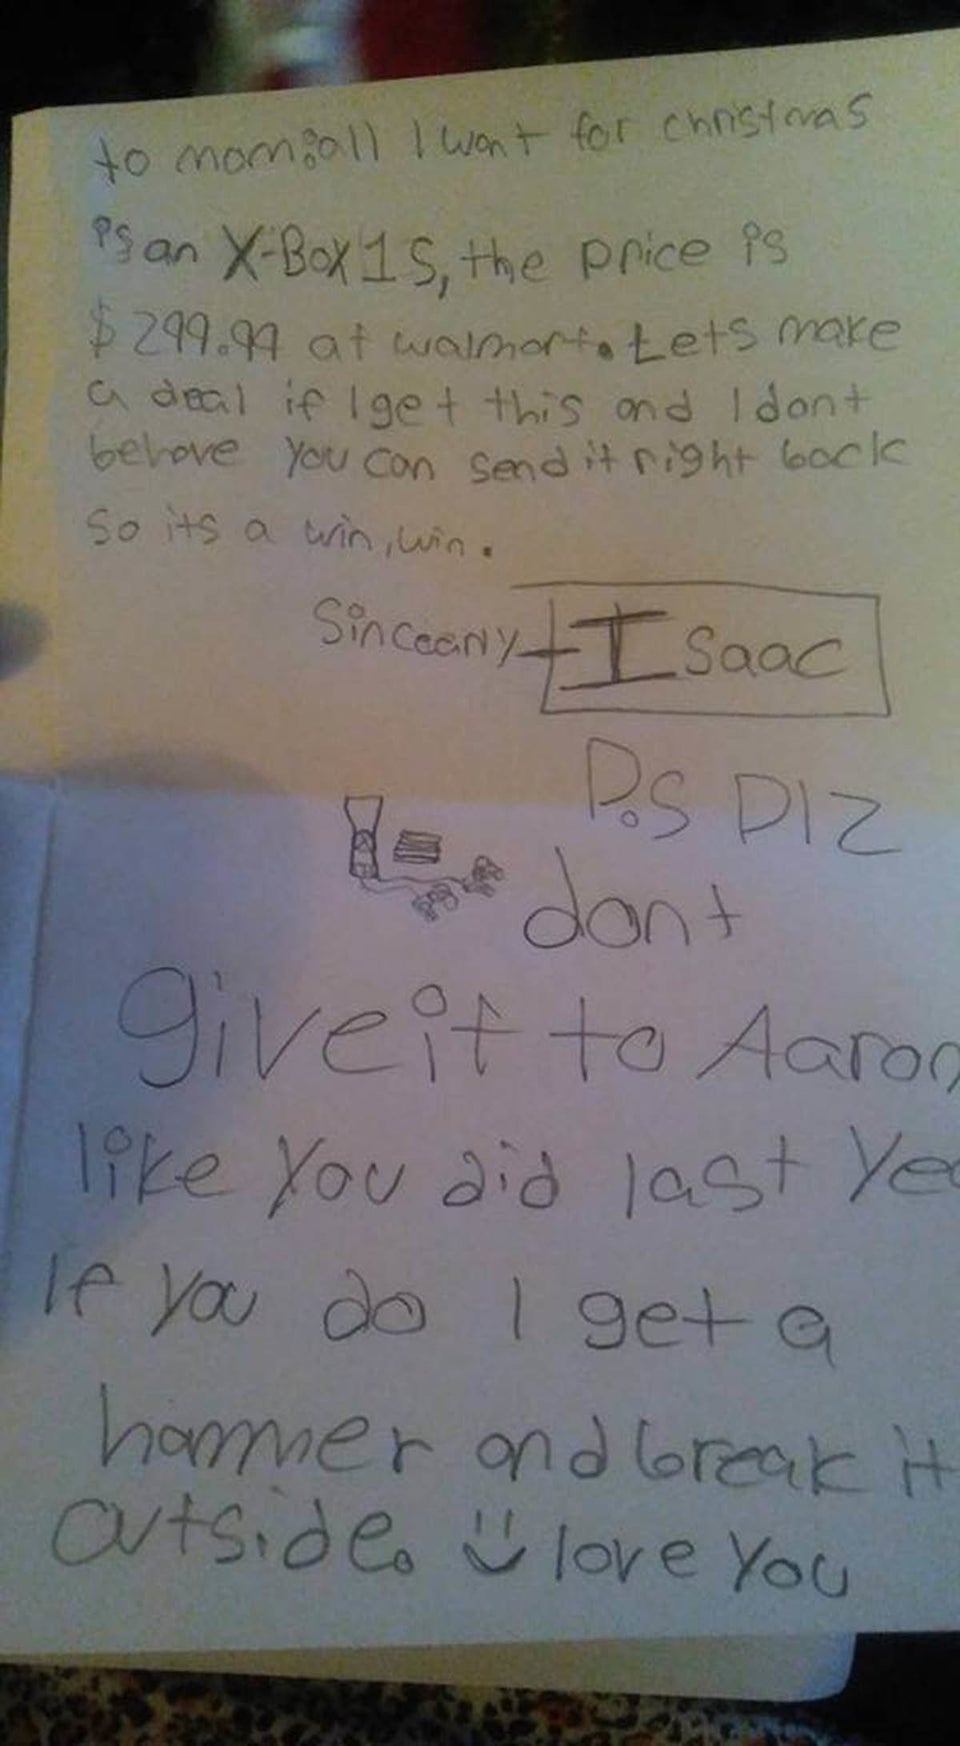 to mom:all I want for christmas
is an X-Box 1S, the price is
$299.99 at walmart. Lets make
a deal if I get this and I dont
behave you can send it right back
so its a win, win.
Sincearly - Isaac
P.S Plz
dont
give it to Aaron
like you did last Yea
If you do I get a
hammer and break it
outside. :) love you